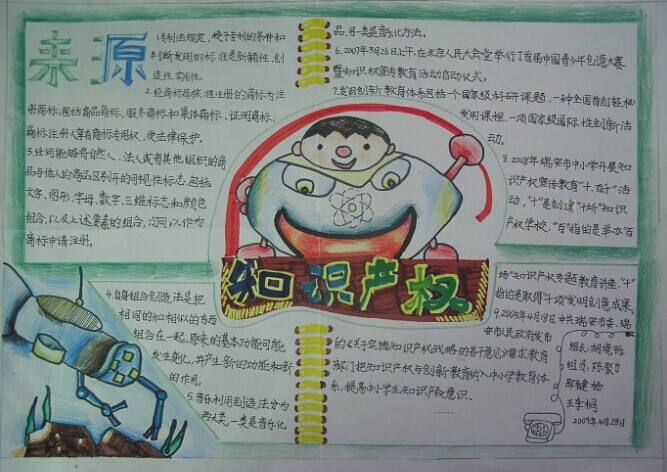 来源
1.专利法规定,授予专利的条件和
判断发明的标准是新颖性、创
造性、实用性。
2.经商标局核准注册的商标为注
册商标,包括商品商标、服务商标和集体商标、证明商标,
商标注册人享有商标专用权,受法律保护。
3.任何能够将自然人、法人或者其他组织的商
品与他人的商品区别开的可视性标志,包括
文字、图形、字母、数字、三维标志和颜色
组合,以及上述要素的组合,均可以作为
商标申请注册。
4.自身组合创造法是把
相同的和相似的东西
组合在一起,原来的基本功能可能
发生变化,并产生新的功能和新
的作用。
5.音乐利用创造法分为
两大类,一类是音乐化
品,另一类是音乐化方法。
6.2007年7月26日上午,在北京人民大会堂举行了首届中国青少年创意大赛
暨知识权宣传教育活动启动仪式。
7.发明创新教育体系包括一个国家级科研课题、一种全国首创轻松
发明课程、一项国家级国际性创新活
动。
8.2008年瑞安市中小学开展知
识产权宣传教育"十、百、千"活
动,"十"是创建"十所"知识
产权学校,"百"指的是举办"百
场"知识产权专题教育讲座,"千"
指的是取得"千项"发明创意成果。
9.2008年4月18日,中共瑞安市委、瑞
安市民政府发布
的《关于实施知识产权战略的若干意见》要求教育
部门把知识产权与创新教育纳入中小学教育体
系,提高中小学生知识产权意识。
……
知识产权
组长:胡
组员:陈
2009年4月28日